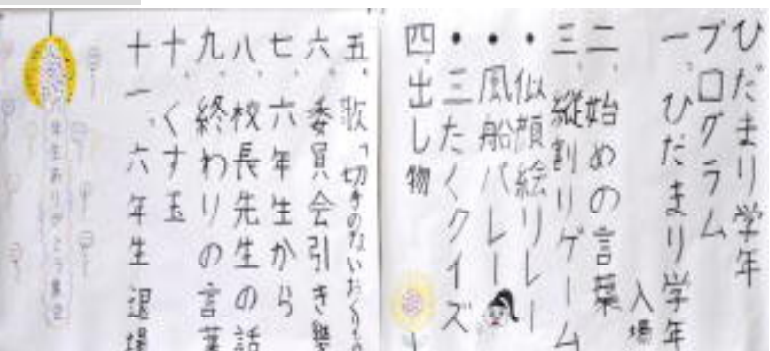 ひだまり学年
プログラム
一、ひだまり学年
入場
二、始めの言葉
三、縦割りゲーム
・似顔絵リレー
・風船バレー
・三たくクイズ
四、出し物
五、歌「切手のないおくりもの
六、委員会引き継
七、六年生から
八、校長先生の話
九、終わりの言葉
十、くす玉
十一、六年生退場
年生ありがとう集会